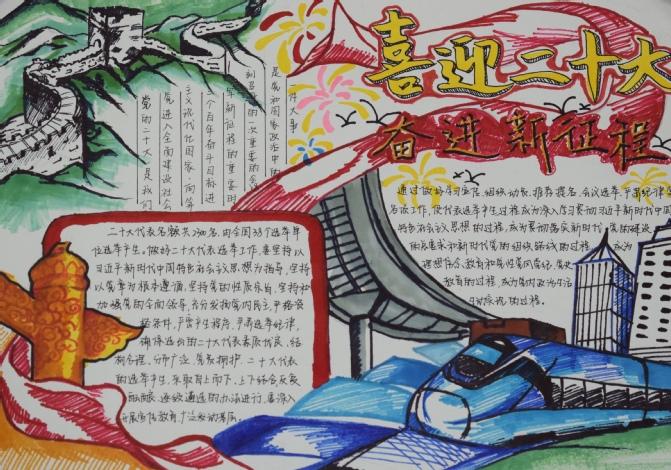 喜迎二十大
奋进新征程
党的二十大是我们
奋进入全面建设社会
主义现代化国家、向第
二个百年奋斗目标进
军新征程的重要时
刻召开的一次重要的会
是党和国家政治中的
一件大事
二十大代表名额共2300名，由全国38个选举单
位选举产生。做好二十大代表选举工作，要坚持以
习近平新时代中国特色社会主义思想为指导，坚持
以党章为根本遵循，坚持党的性质宗旨，坚持和
加强党的全面领导，充分发扬党内民主，严格资
格条件，严密产生程序，严肃选举纪律，
确保选出的二十大代表素质优良、结
构合理、分布广泛、党员拥护。二十大代表
的选举产生，采取自上而下、上下结合、反复
酝酿、逐级遴选的办法进行，要深入
开展宣传教育，广泛发动党员
通过做好学习宣传、组织动员、推荐提名、会议选举、严肃纪律等
各项工作，使代表选举产生过程成为深入学习贯彻习近平新时代中国
特色社会主义思想的过程，成为贯彻落实新时代党的建设
总要求和新时代党的组织路线的过程，成为
理想信念教育和党性党风党纪、党史
教育的过程，成为党内政治生活
的过程。